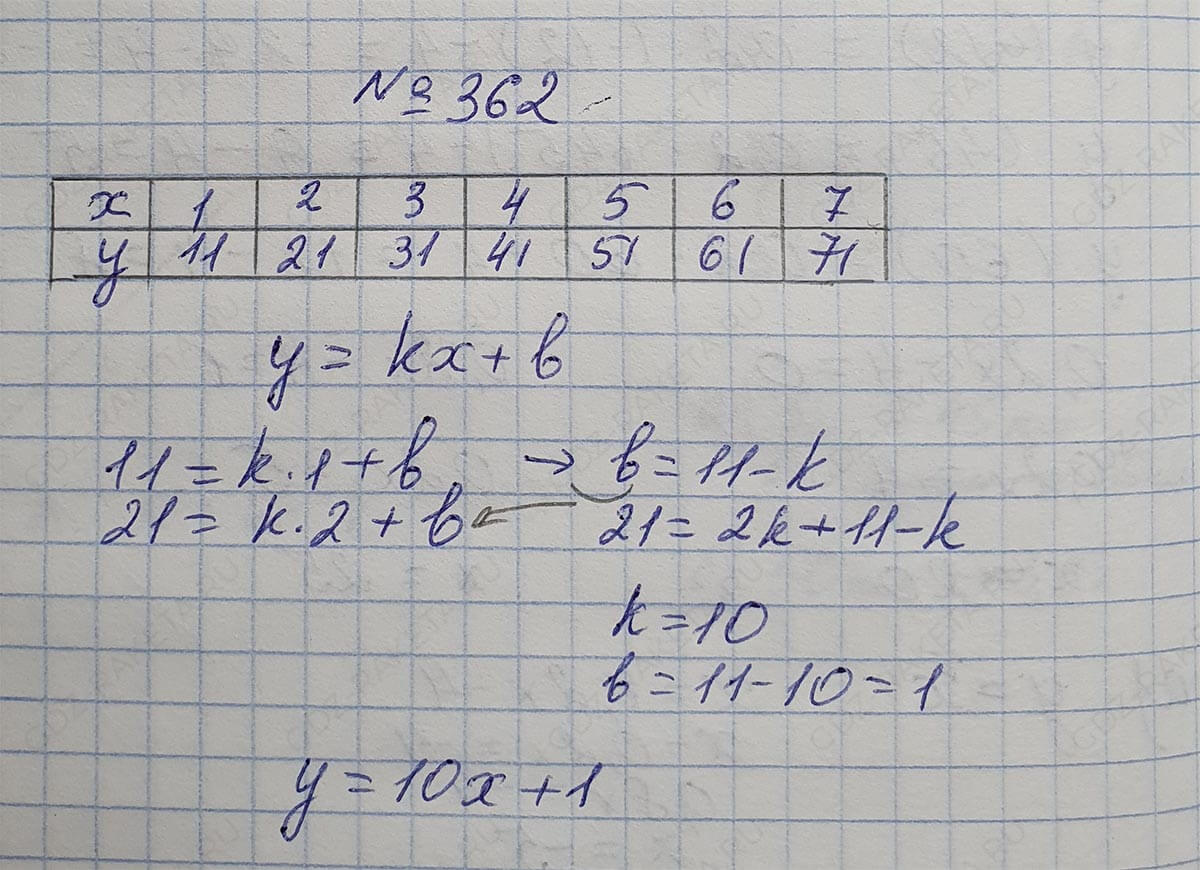 № 362
x 1 2 3 4 5 6 7
y 11 21 31 41 51 61 71
y = kx + b
11 = k · 1 + b → b = 11 - k
21 = k · 2 + b 21 = 2k + 11 - k
k = 10
b = 11 - 10 = 1
y = 10x + 1